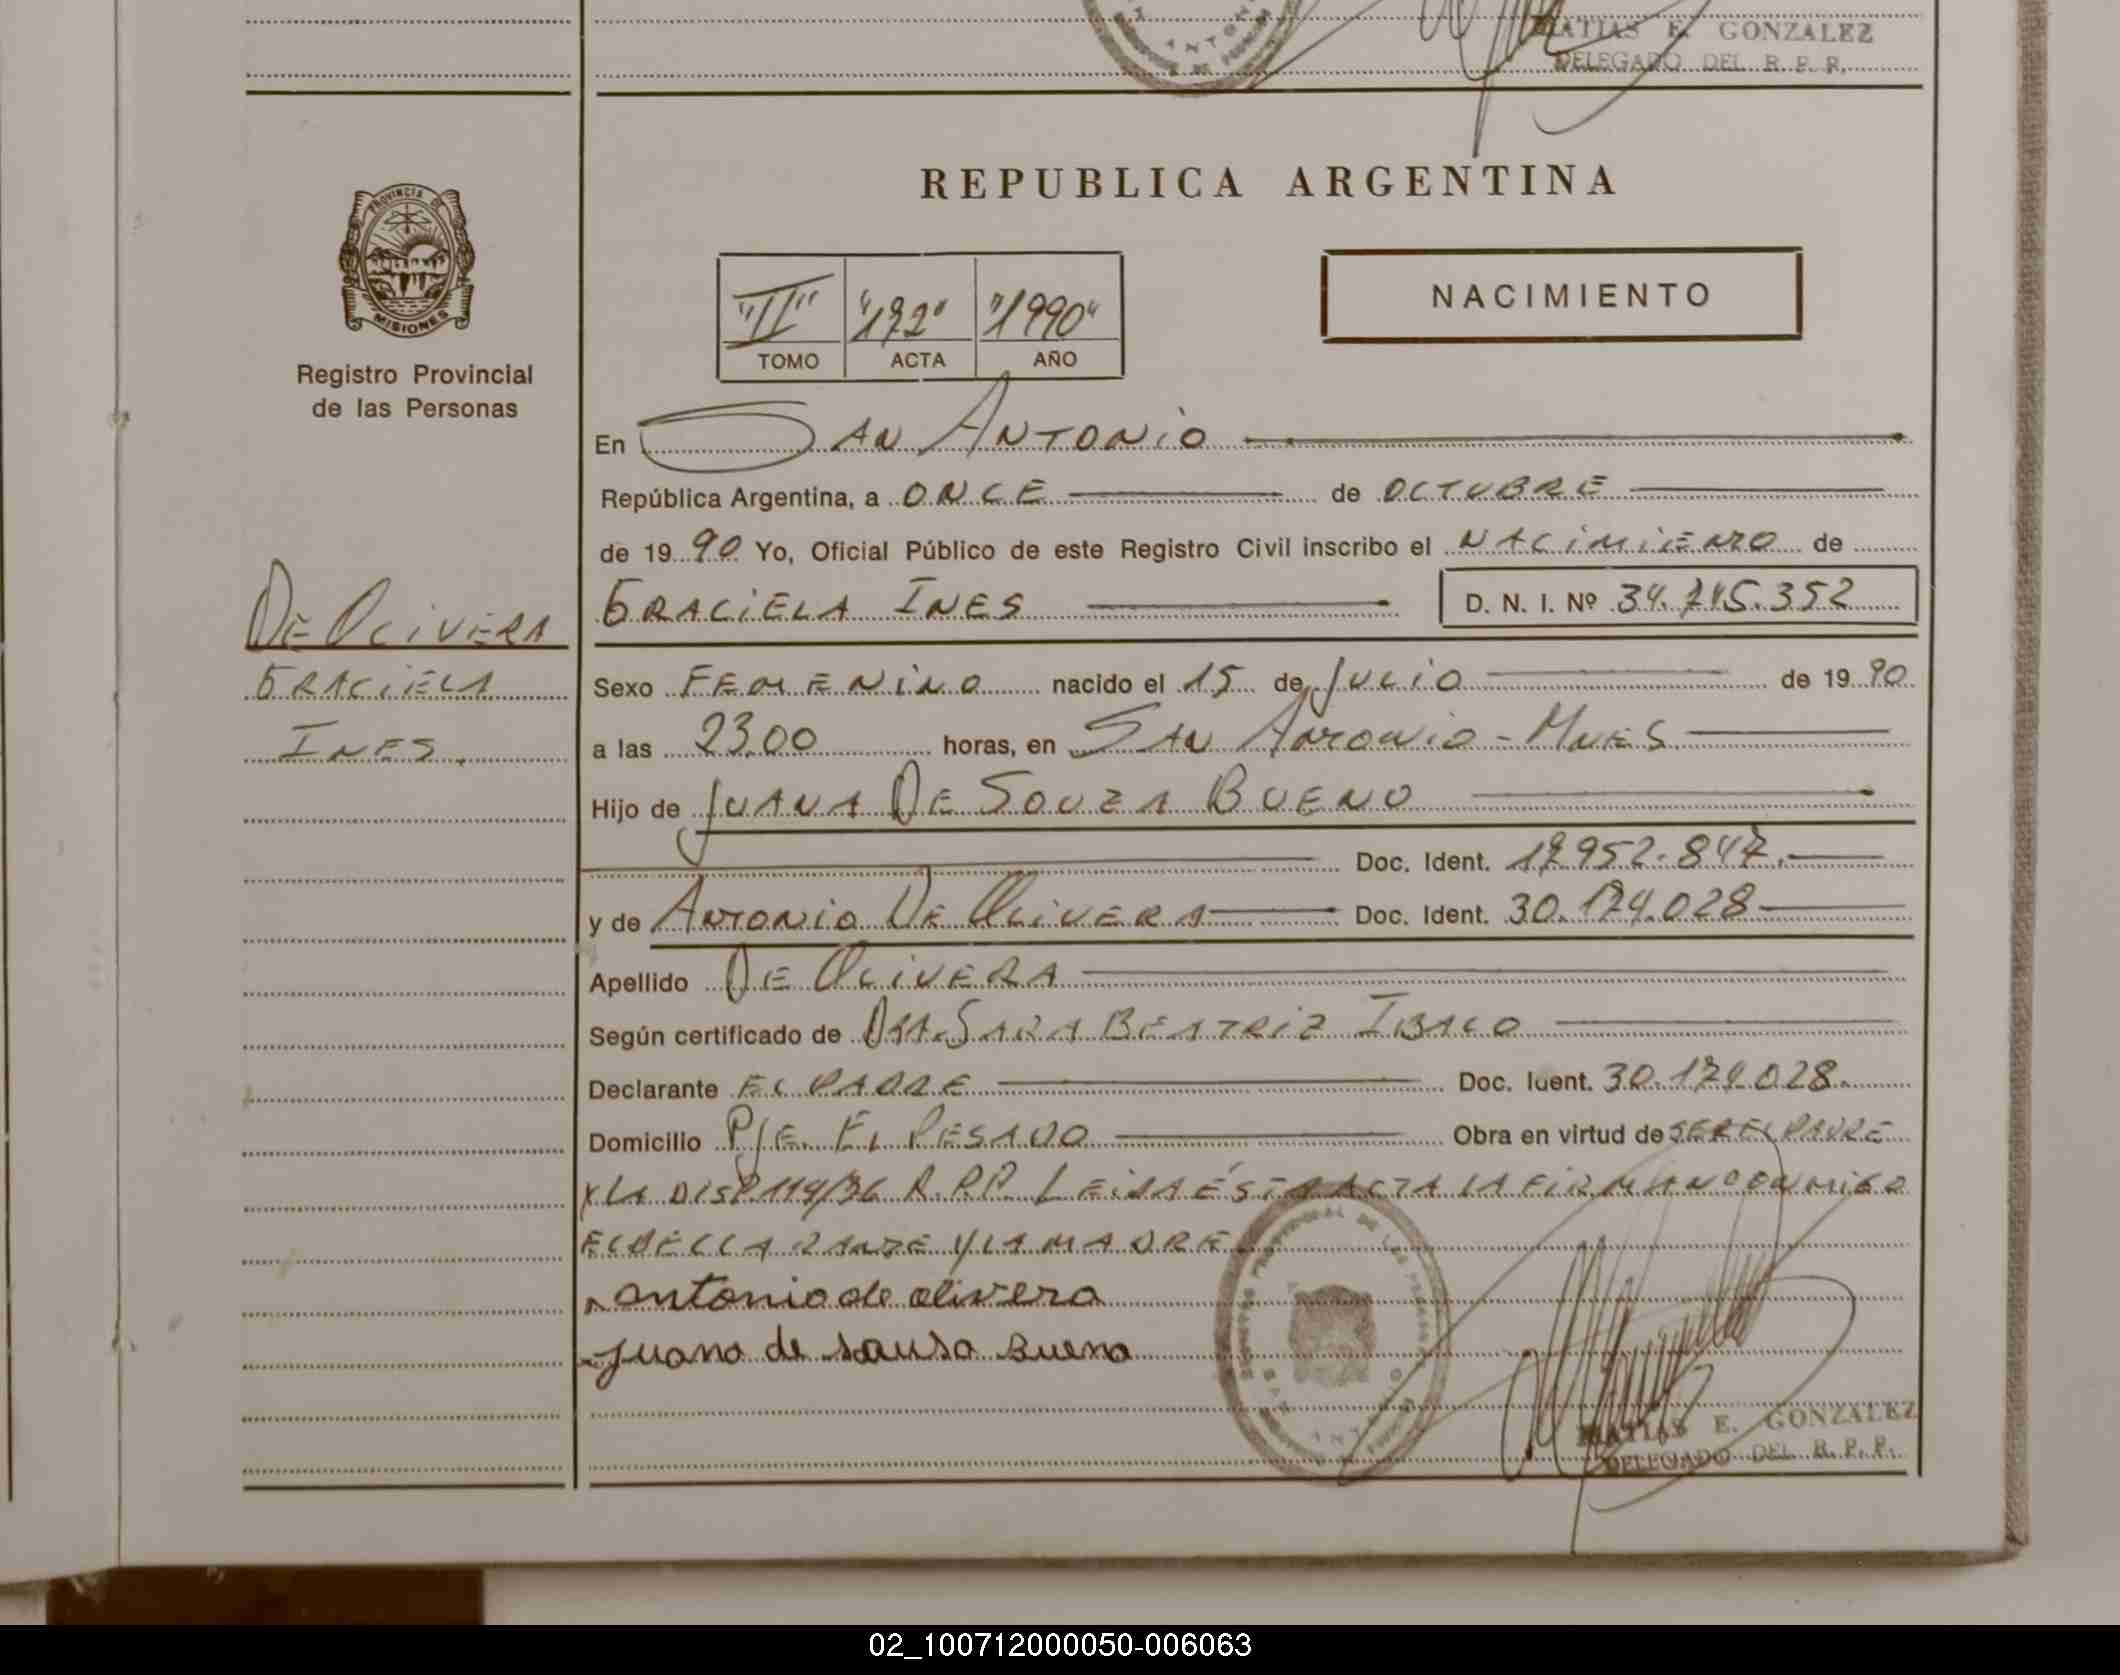 MATIAS E. GONZALEZ
DELEGADO DEL R. P. P.
PROVINCIA DE
MISIONES
Registro Provincial
de las Personas
REPUBLICA ARGENTINA
"II" "172" "1990"
TOMO ACTA AÑO
NACIMIENTO
En SAN ANTONIO
República Argentina, a ONCE de OCTUBRE
de 19 90 Yo, Oficial Público de este Registro Civil inscribo el NACIMIENTO de
GRACIELA INES D. N. I. Nº 34.745.352
DE OLIVERA
GRACIELA
INES.
Sexo FEMENINO nacido el 15 de JULIO de 19 90
a las 23,00 horas, en SAN ANTONIO - MNES
Hijo de JUANA DE SOUZA BUENO
Doc. Ident. 17952.847.
y de ANTONIO DE OLIVERA Doc. Ident. 30.174.028
Apellido DE OLIVERA
Según certificado de DRA. SARA BEATRIZ IBALO
Declarante EL PADRE Doc. Ident. 30.174.028.
Domicilio PJE. EL PESADO Obra en virtud de SER EL PADRE
X LA DISP. 114/86 R. P. P. LEIDA ÉSTA ACTA LA FIRMAN CONMIGO
EL DECLARANTE Y LA MADRE
antonio de olivera
juana de sausa Bueno
MATIAS E. GONZALEZ
DELEGADO DEL R. P. P.
02_100712000050-006063